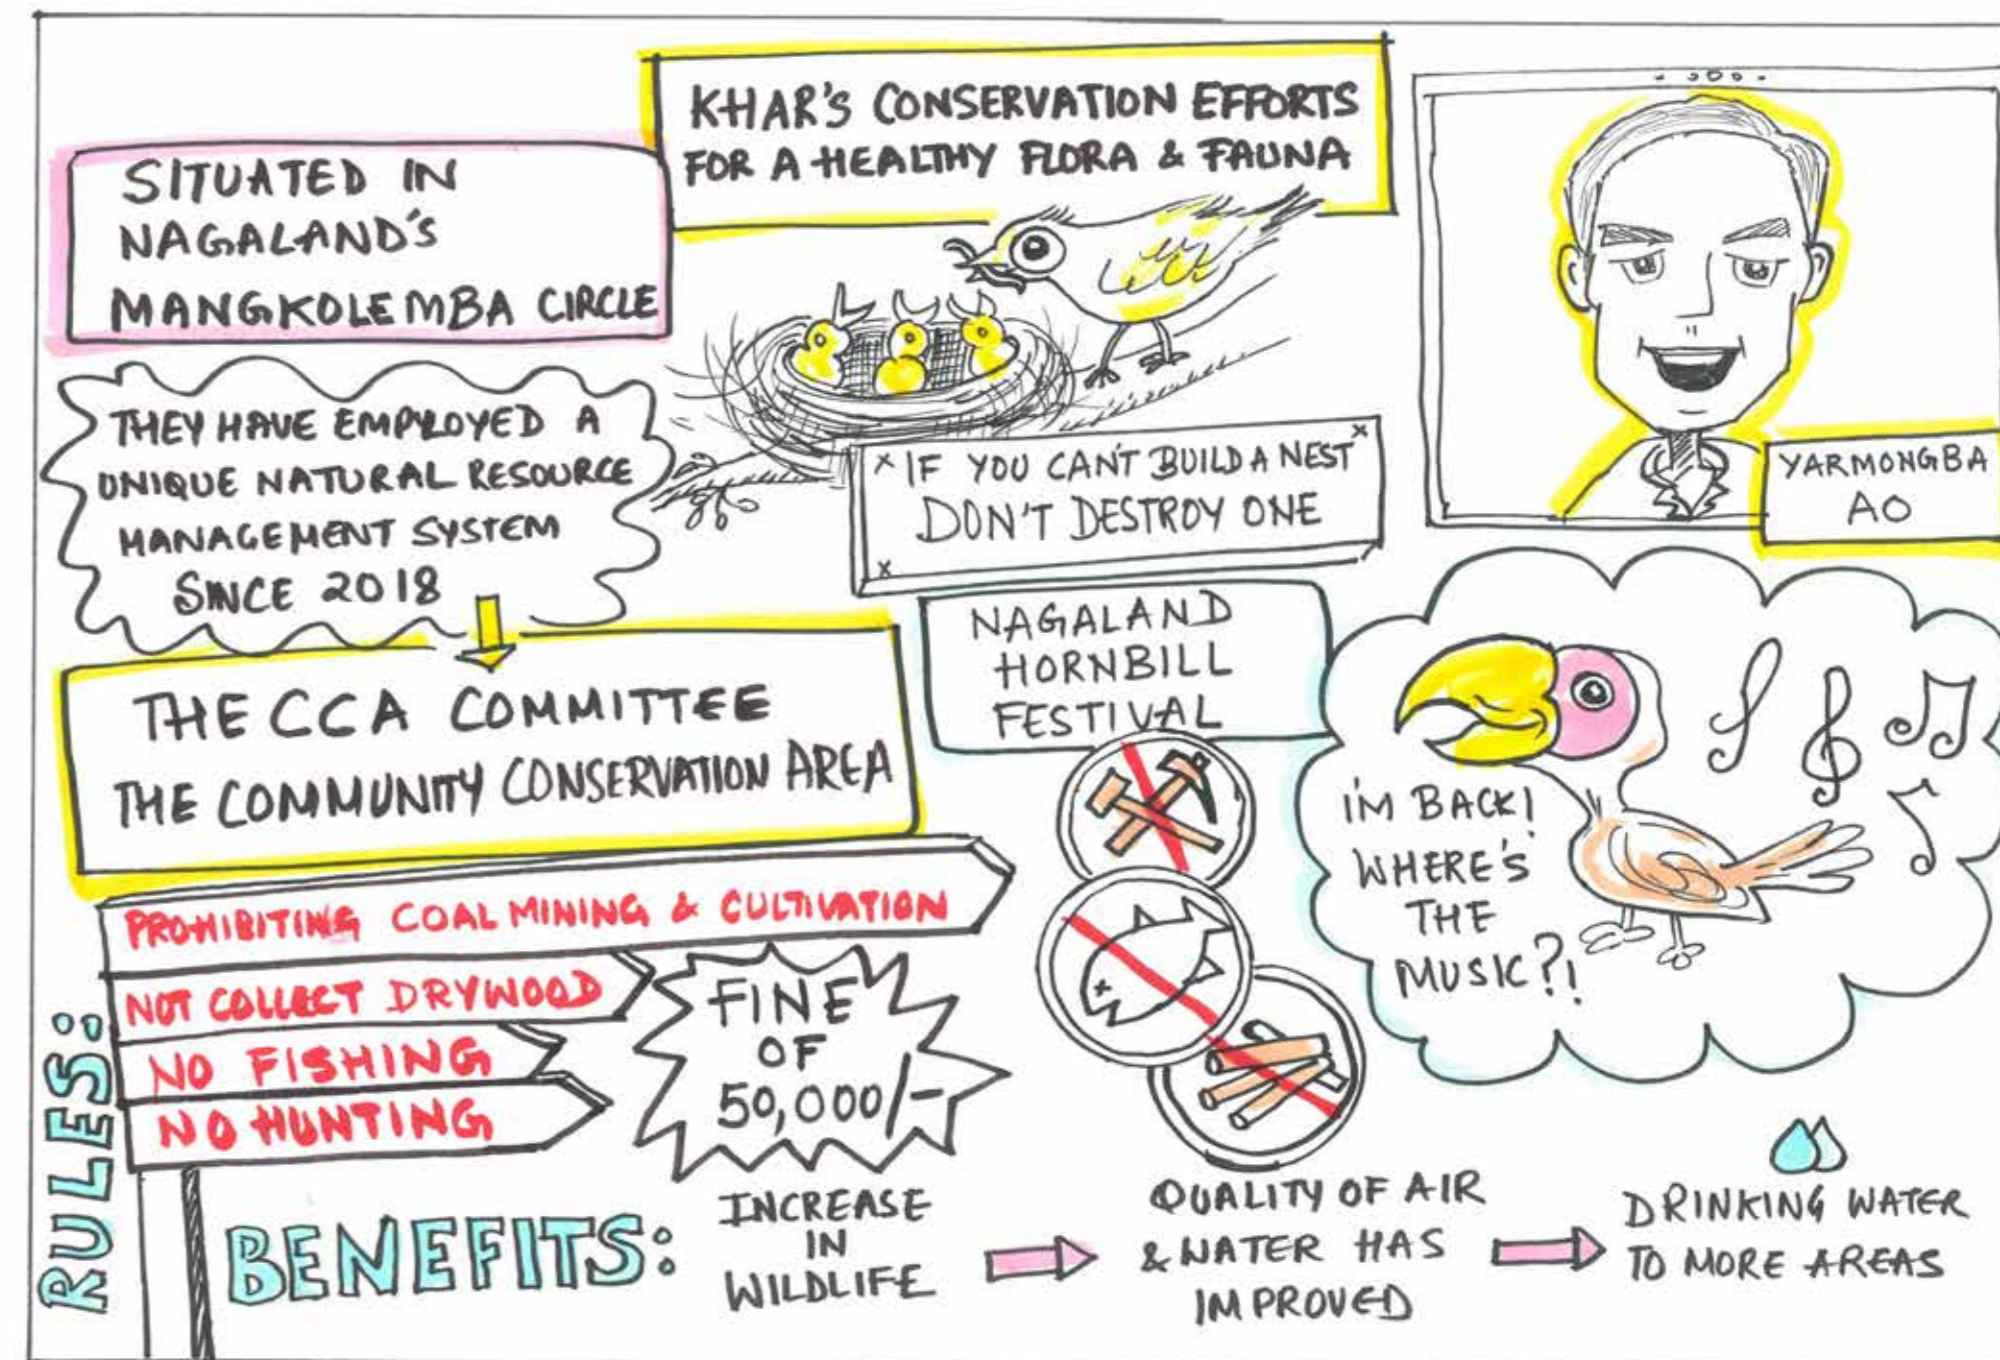 KHAR'S CONSERVATION EFFORTS
FOR A HEALTHY FLORA & FAUNA
SITUATED IN
NAGALAND'S
MANGKOLEMBA CIRCLE
THEY HAVE EMPLOYED A
UNIQUE NATURAL RESOURCE
MANAGEMENT SYSTEM
SINCE 2018
IF YOU CAN'T BUILD A NEST
DON'T DESTROY ONE
YARMONGBA
AO
THE CCA COMMITTEE
THE COMMUNITY CONSERVATION AREA
NAGALAND
HORNBILL
FESTIVAL
I'M BACK!
WHERE'S
THE
MUSIC?!
RULES:
PROHIBITING COAL MINING & CULTIVATION
NOT COLLECT DRYWOOD
NO FISHING
NO HUNTING
FINE
OF
50,000/-
BENEFITS:
INCREASE
IN
WILDLIFE
QUALITY OF AIR
& WATER HAS
IMPROVED
DRINKING WATER
TO MORE AREAS